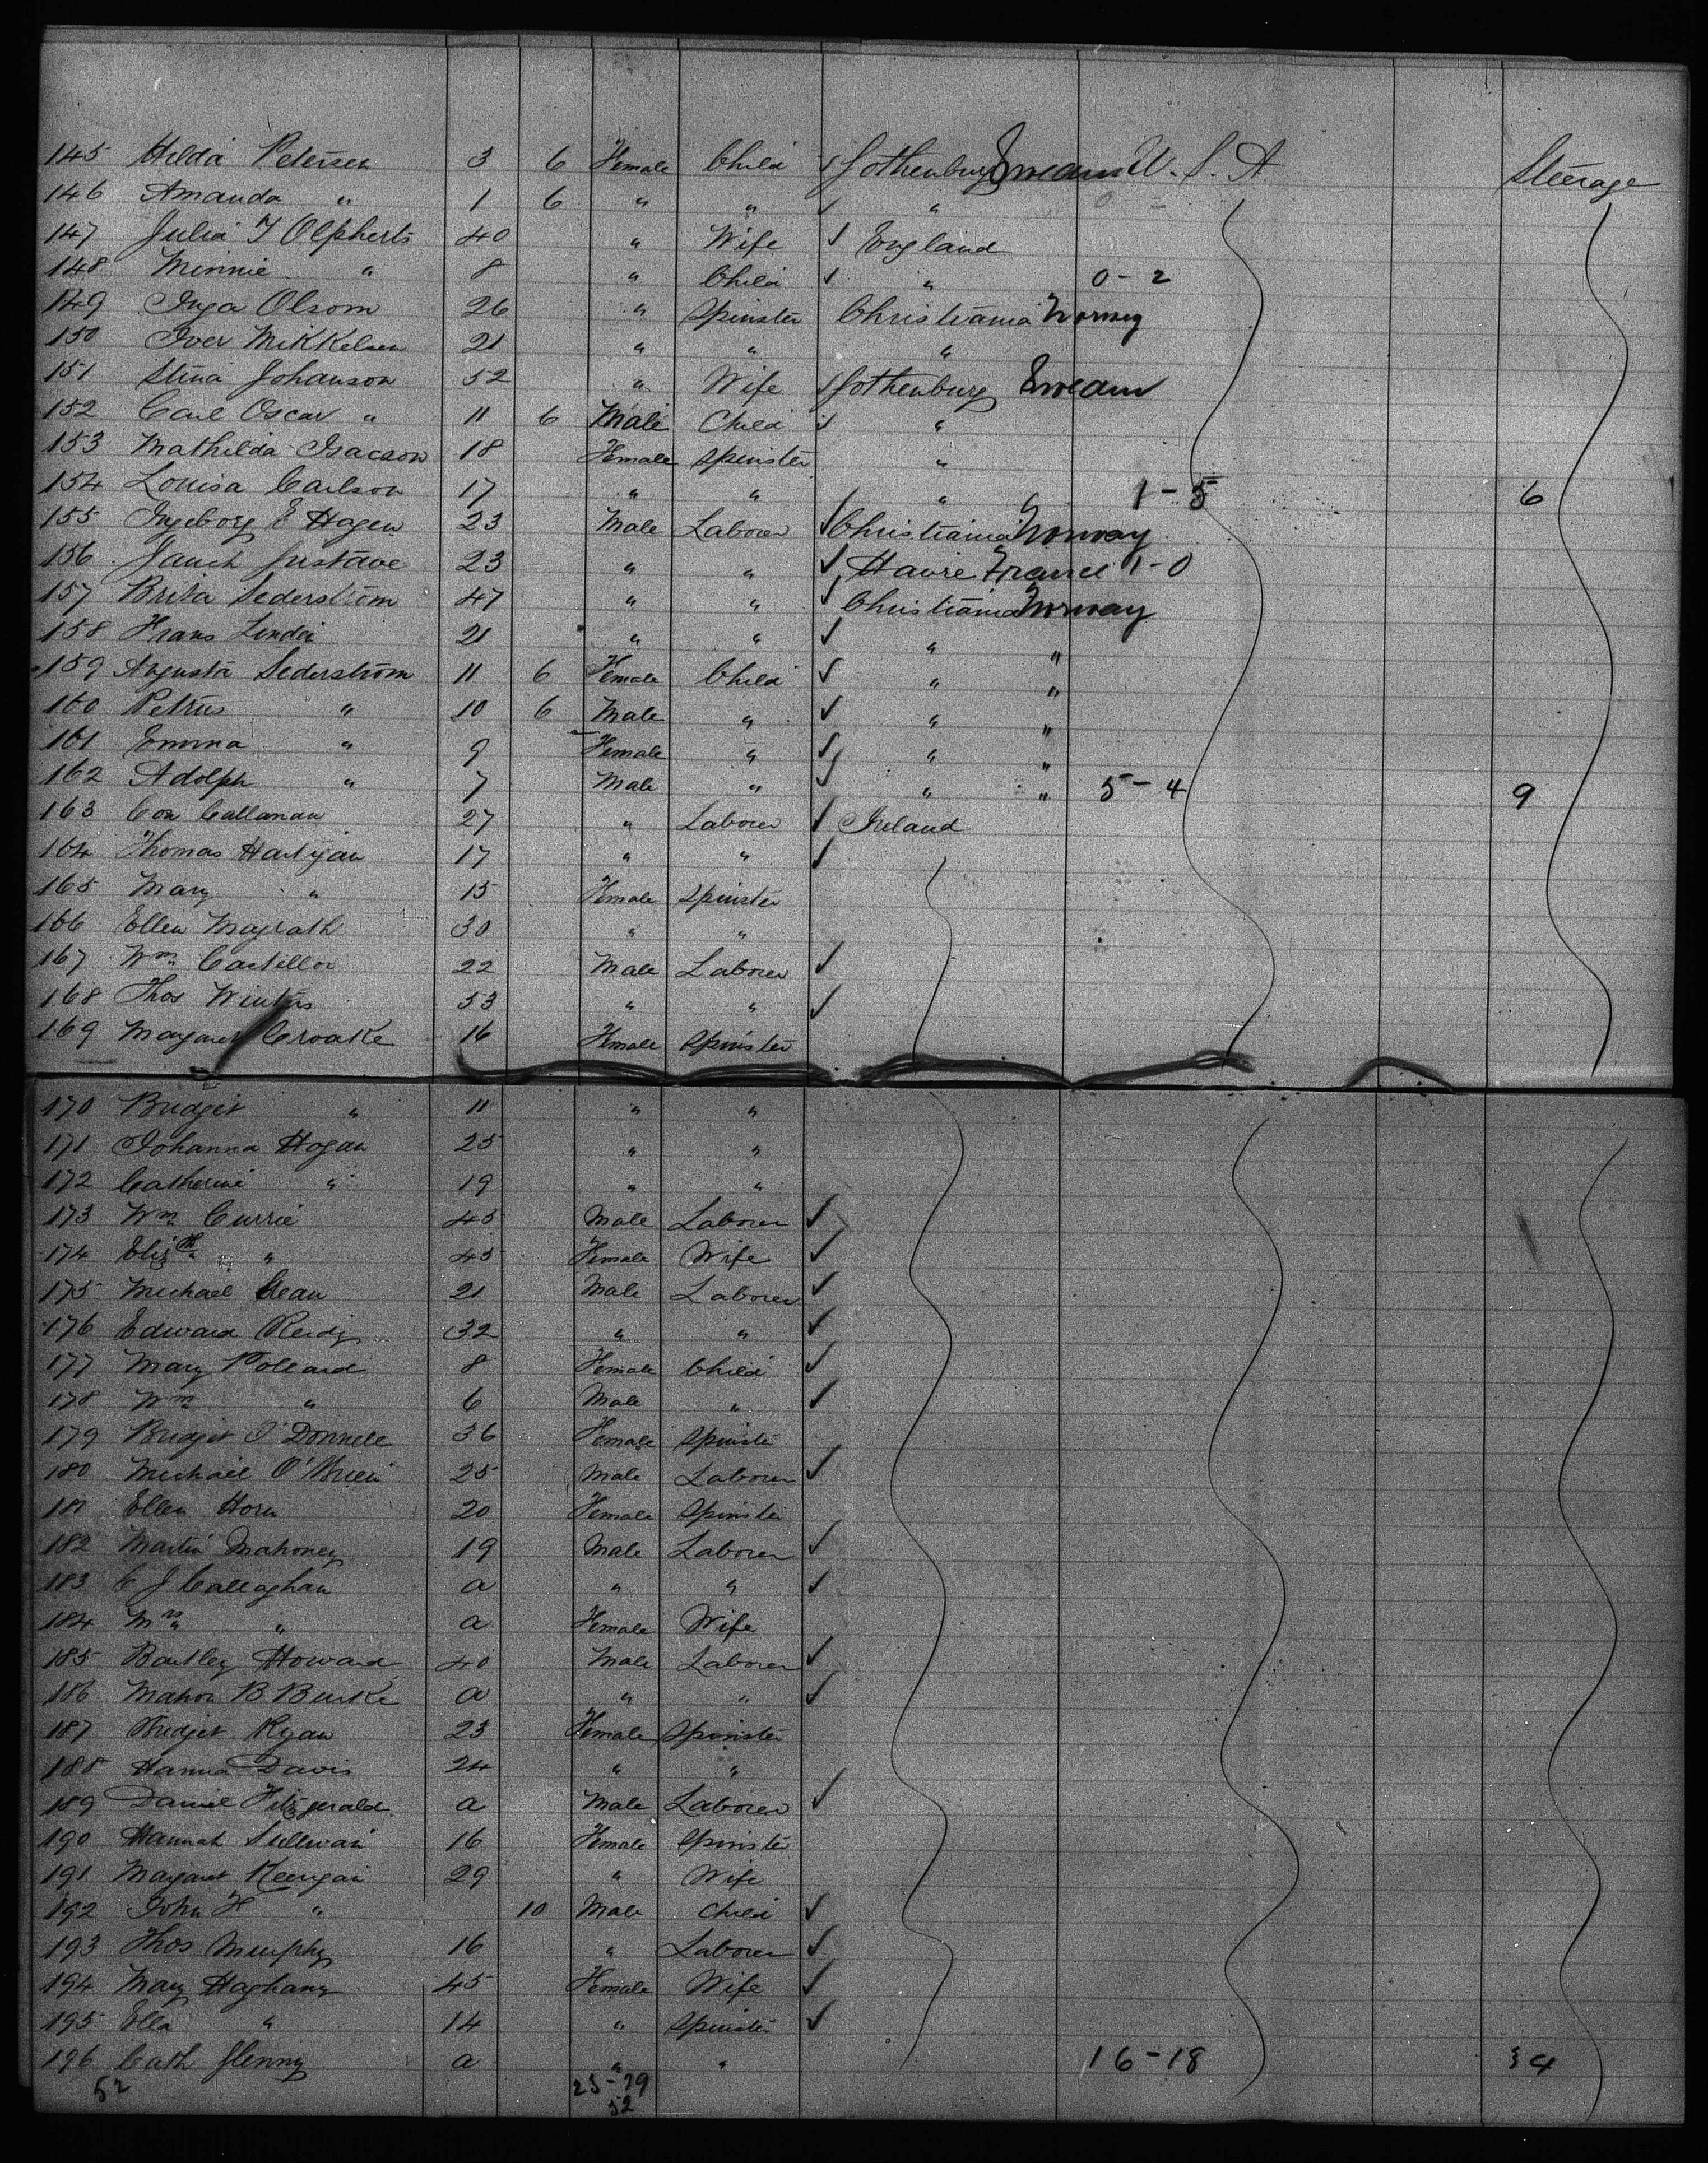 145 Hilda Petersen 3 6 Female Child ✓ Gothenburg Sweden U. S. A Steerage
146 Amanda " 1 6 " " ✓ "
147 Julia T Olpherts 40 " Wife ✓ England
148 Minnie " 8 " Child ✓ " 0-2
149 Inga Olsom 26 " Spinster Christiania Norway
150 Iver Mikkelsen 21 " " "
151 Stina Johanson 52 " Wife ✓ Gothenburg Sweden
152 Carl Oscar " 11 6 Male Child ✓ "
153 Mathilda Isacson 18 Female Spinster "
154 Louisa Carlson 17 " " " 1-5 6
155 Ingeborg E Hagen 23 Male Laborer ✓ Christiania Norway
156 Jauch Gustave 23 " " ✓ Havre France 1-0
157 Brita Sederstrom 47 " " ✓ Christiania Norway
158 Frans 21 " " ✓ " "
159 Augusta Sederstrom 11 6 Female Child ✓ " "
160 Petrus " 10 6 Male " ✓ " "
161 Emma " 9 Female " ✓ " "
162 Adolph " 7 Male " ✓ " " 5-4 9
163 Con Callanan 27 " Laborer ✓ Ireland
164 Thomas Hartigan 17 " " ✓
165 Mary " 15 Female Spinster
166 Ellen Magrath 30 " "
167 Wm Costelloe 22 Male Laborer ✓
168 Thos Winters 53 " " ✓
169 Margaret Croake 16 Female Spinster
170 Bridget " 11 " "
171 Johanna Hogan 25 " "
172 Catherine " 19 " "
173 Wm Currie 45 Male Laborer ✓
174 Elizth " 45 Female Wife ✓
175 Michael 21 Male Laborer ✓
176 Edward Reidy 32 " " ✓
177 Mary Pollard 8 Female Child ✓
178 Wm " 6 Male " ✓
179 Bridget O'Donnell 36 Female Spinster
180 Michael O'Brien 25 Male Laborer ✓
181 Ellen Horn 20 Female Spinster
182 Martin Mahoney 19 Male Laborer ✓
183 C J Callaghan a " " ✓
184 Mrs " a Female Wife
185 Bartley Howard 40 Male Laborer ✓
186 Mahon B Burke a " " ✓
187 Bridget Ryan 23 Female Spinster
188 Hanna Davis 24 " "
189 Daniel Fitzgerald a Male Laborer ✓
190 Hannah Sullivan 16 Female Spinster
191 Margaret Keergan 29 " Wife
192 John H " 10 Male Child ✓
193 Thos Murphy 16 " Laborer ✓
194 Mary Haghany 45 Female Wife ✓
195 Ella " 14 " Spinster ✓
196 Cath Glenny a " " 16-18 34
52 23-29
52